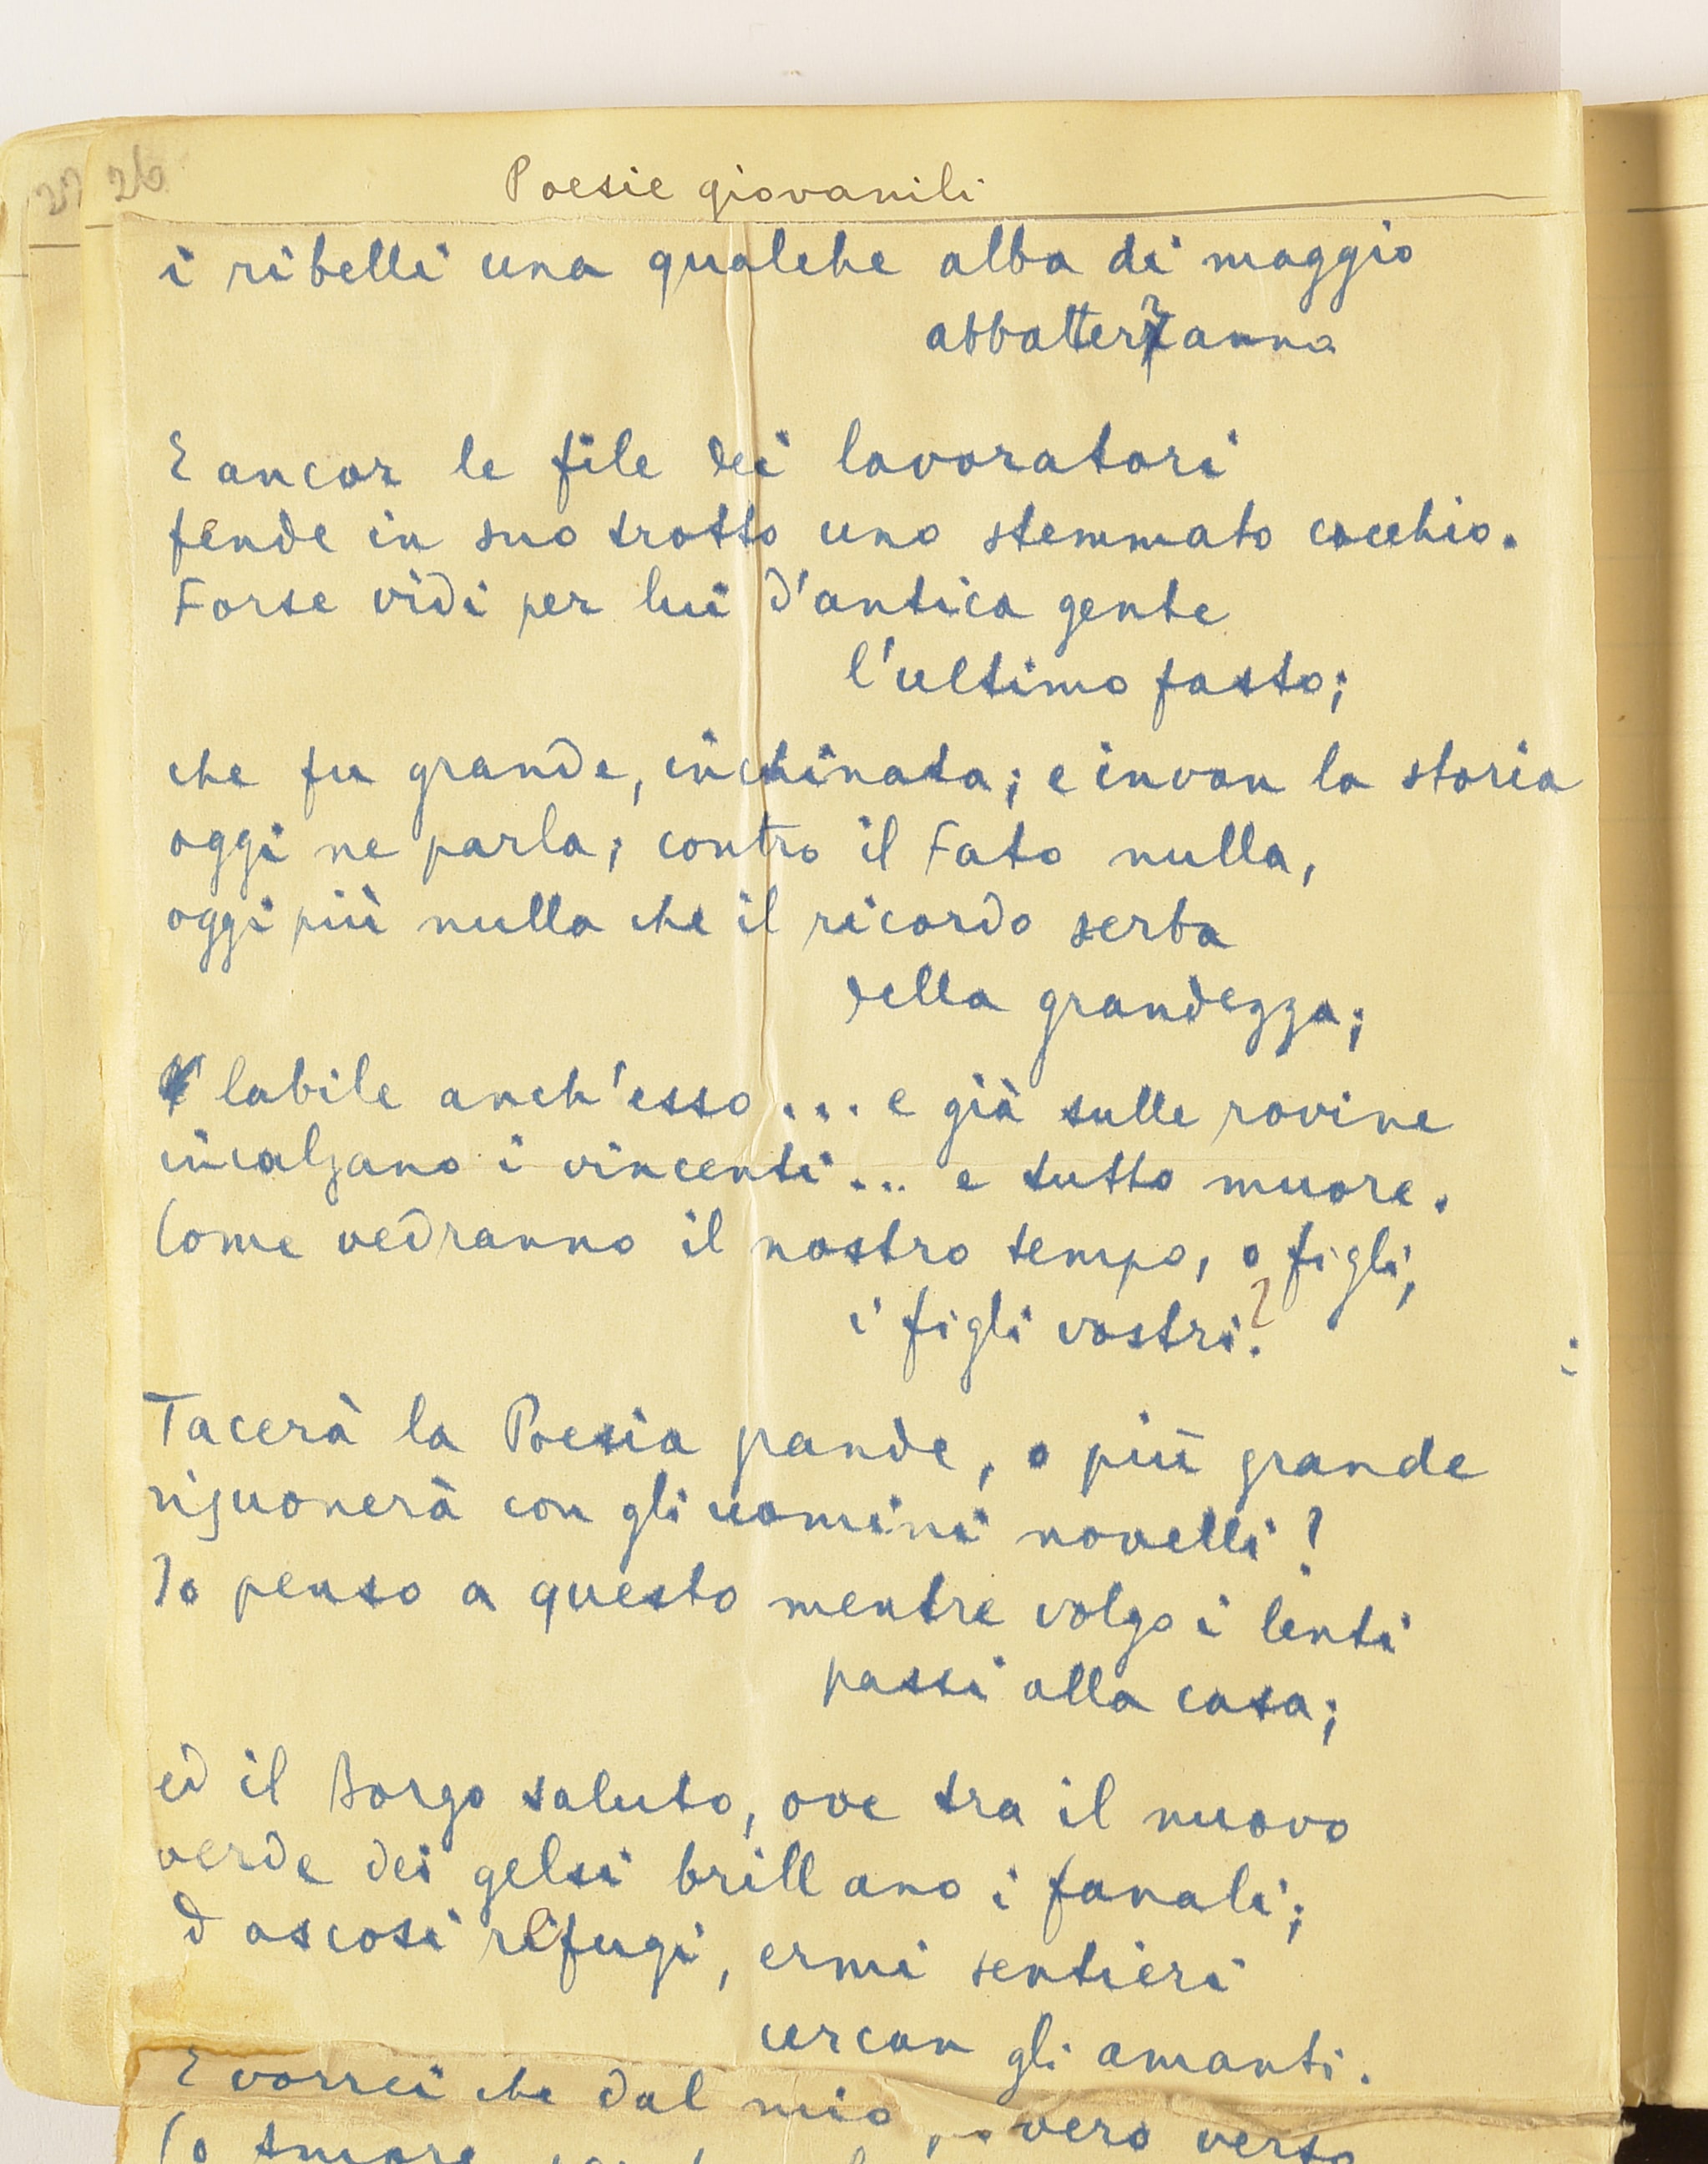 27 26
Poesie giovanili
i ribelli una qualche alba di maggio
abbatteranno
E ancor le file dei lavoratori
fende in suo trotto uno stemmato cocchio.
Forse vidi per lui d'antica gente
l'ultimo fasto;
che fu grande, inchinata; e invan la storia
oggi ne parla; contro il Fato nulla,
oggi più nulla che il ricordo serba
della grandezza;
labile anch'esso... e già sulle rovine
incalzano i vincenti... e tutto muore.
Come vedranno il nostro tempo, o figli,
i figli vostri?
Tacerà la Poesia grande, o più grande
risuonerà con gli uomini novelli!
Io penso a questo mentre volgo i lenti
passi alla casa;
ed il Borgo saluto, ove tra il nuovo
verde dei gelsi brillano i fanali;
d ascosi rifugi, ermi sentieri
cercan gli amanti.
E vorrei che dal mio vero verso